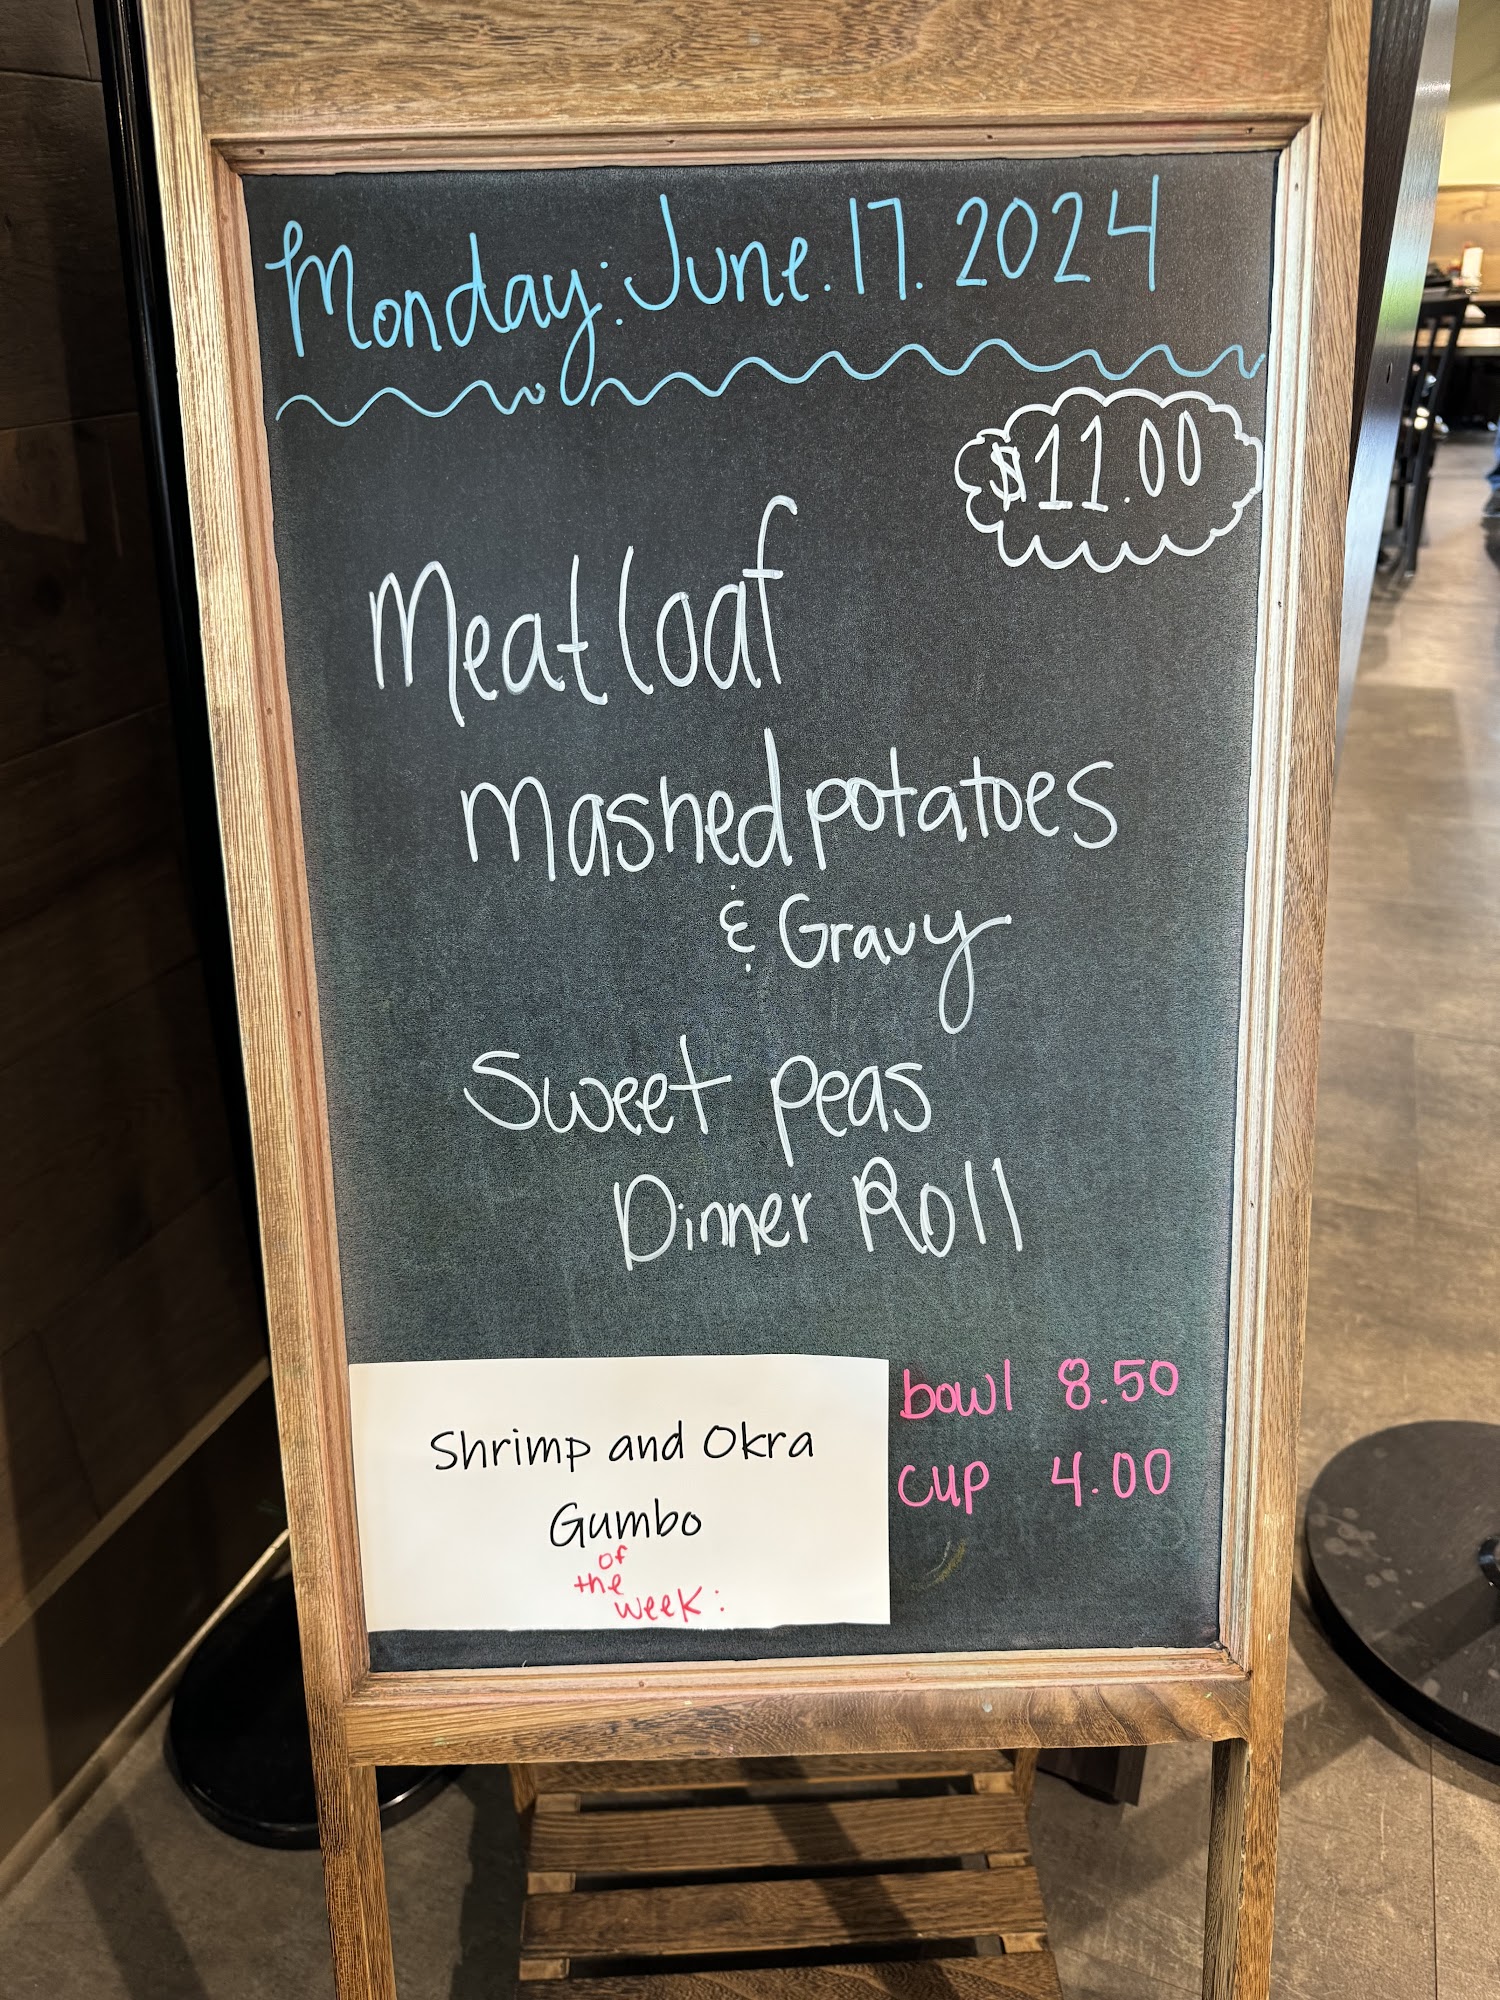 Monday: June. 17. 2024
$11.00
Meatloaf
Mashed potatoes
& Gravy
Sweet peas
Dinner Roll
Shrimp and Okra
Gumbo
of
the
week:
bowl 8.50
cup 4.00